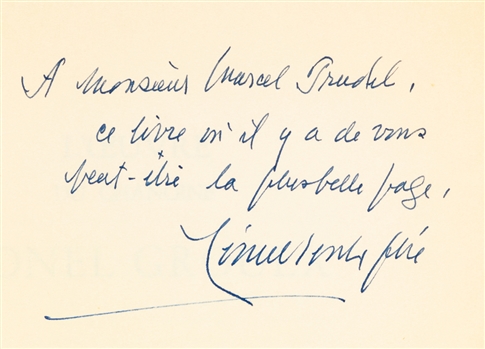 A Monsieur Marcel Trudel,
ce livre où il y a de vous
peut-être la plus belle page,
ptre